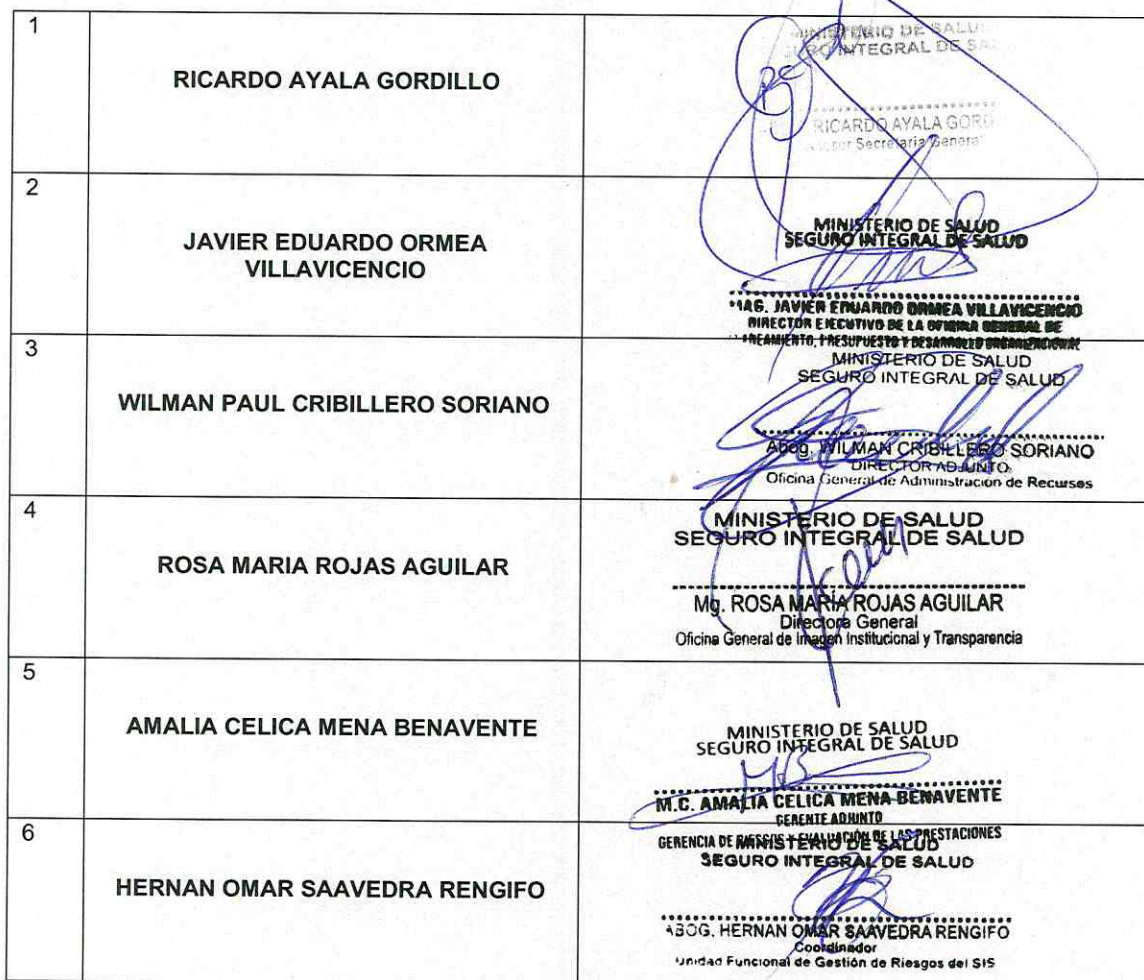 1
RICARDO AYALA GORDILLO
MINISTERIO DE SALUD
SEGURO INTEGRAL DE SA
RICARDO AYALA GORD
Secretaria General
2
JAVIER EDUARDO ORMEA
VILLAVICENCIO
MINISTERIO DE SALUD
SEGURO INTEGRAL DE SALUD
MAG. JAVIER EDUARDO ORMEA VILLAVICENCIO
DIRECTOR EJECUTIVO DE LA OFICINA GENERAL DE
PRESUPUESTO Y DESARROLLO ORGANIZACIONAL
3
WILMAN PAUL CRIBILLERO SORIANO
MINISTERIO DE SALUD
SEGURO INTEGRAL DE SALUD
Abog. WILMAN CRIBILLERO SORIANO
DIRECTOR ADJUNTO
Oficina General de Administración de Recursos
4
ROSA MARIA ROJAS AGUILAR
MINISTERIO DE SALUD
SEGURO INTEGRAL DE SALUD
Mg. ROSA MARÍA ROJAS AGUILAR
Directora General
Oficina General de Imagen Institucional y Transparencia
5
AMALIA CELICA MENA BENAVENTE
MINISTERIO DE SALUD
SEGURO INTEGRAL DE SALUD
M.C. AMALIA CELICA MENA BENAVENTE
GERENTE ADJUNTO
GERENCIA DE RIESGOS Y EVALUACIÓN DE LAS PRESTACIONES
6
HERNAN OMAR SAAVEDRA RENGIFO
MINISTERIO DE SALUD
SEGURO INTEGRAL DE SALUD
ABOG. HERNAN OMAR SAAVEDRA RENGIFO
Coordinador
Unidad Funcional de Gestión de Riesgos del SIS